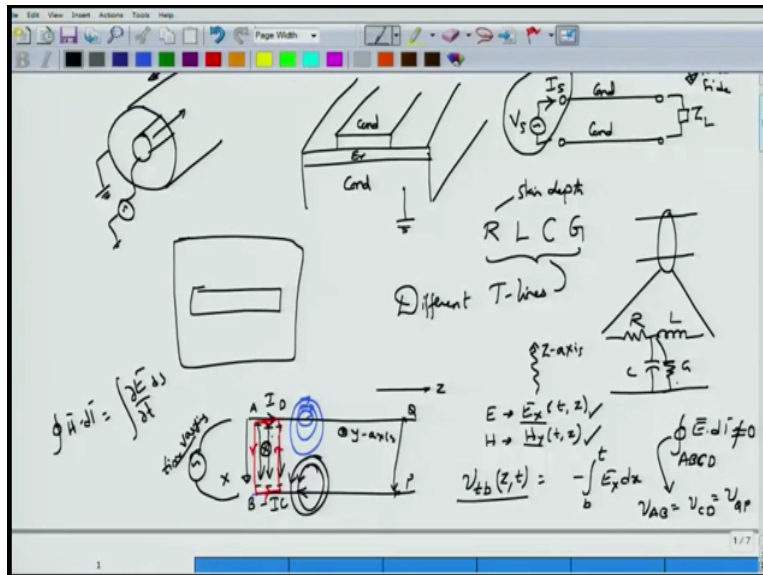 File Edit View Insert Actions Tools Help
Page Width
B I
Cond
Er
Cond
Is
Vs
Cond
Cond
Side
ZL
skin depth
R L C G
Different T-lines
R L
C G
z-axis
∮ H̄·dl̄ = ∫ ∂Ē/∂t ds
time varying
A I D Q
z
⊙ y-axis
x
B -I C P
E → Ex (t, z) ✓
H → Hy (t, z) ✓
∮ABCD Ē·dl̄ ≠ 0
vtb (z,t) = - ∫_b^t Ex dx
vAB = vCD = vQP
1 / 7
1